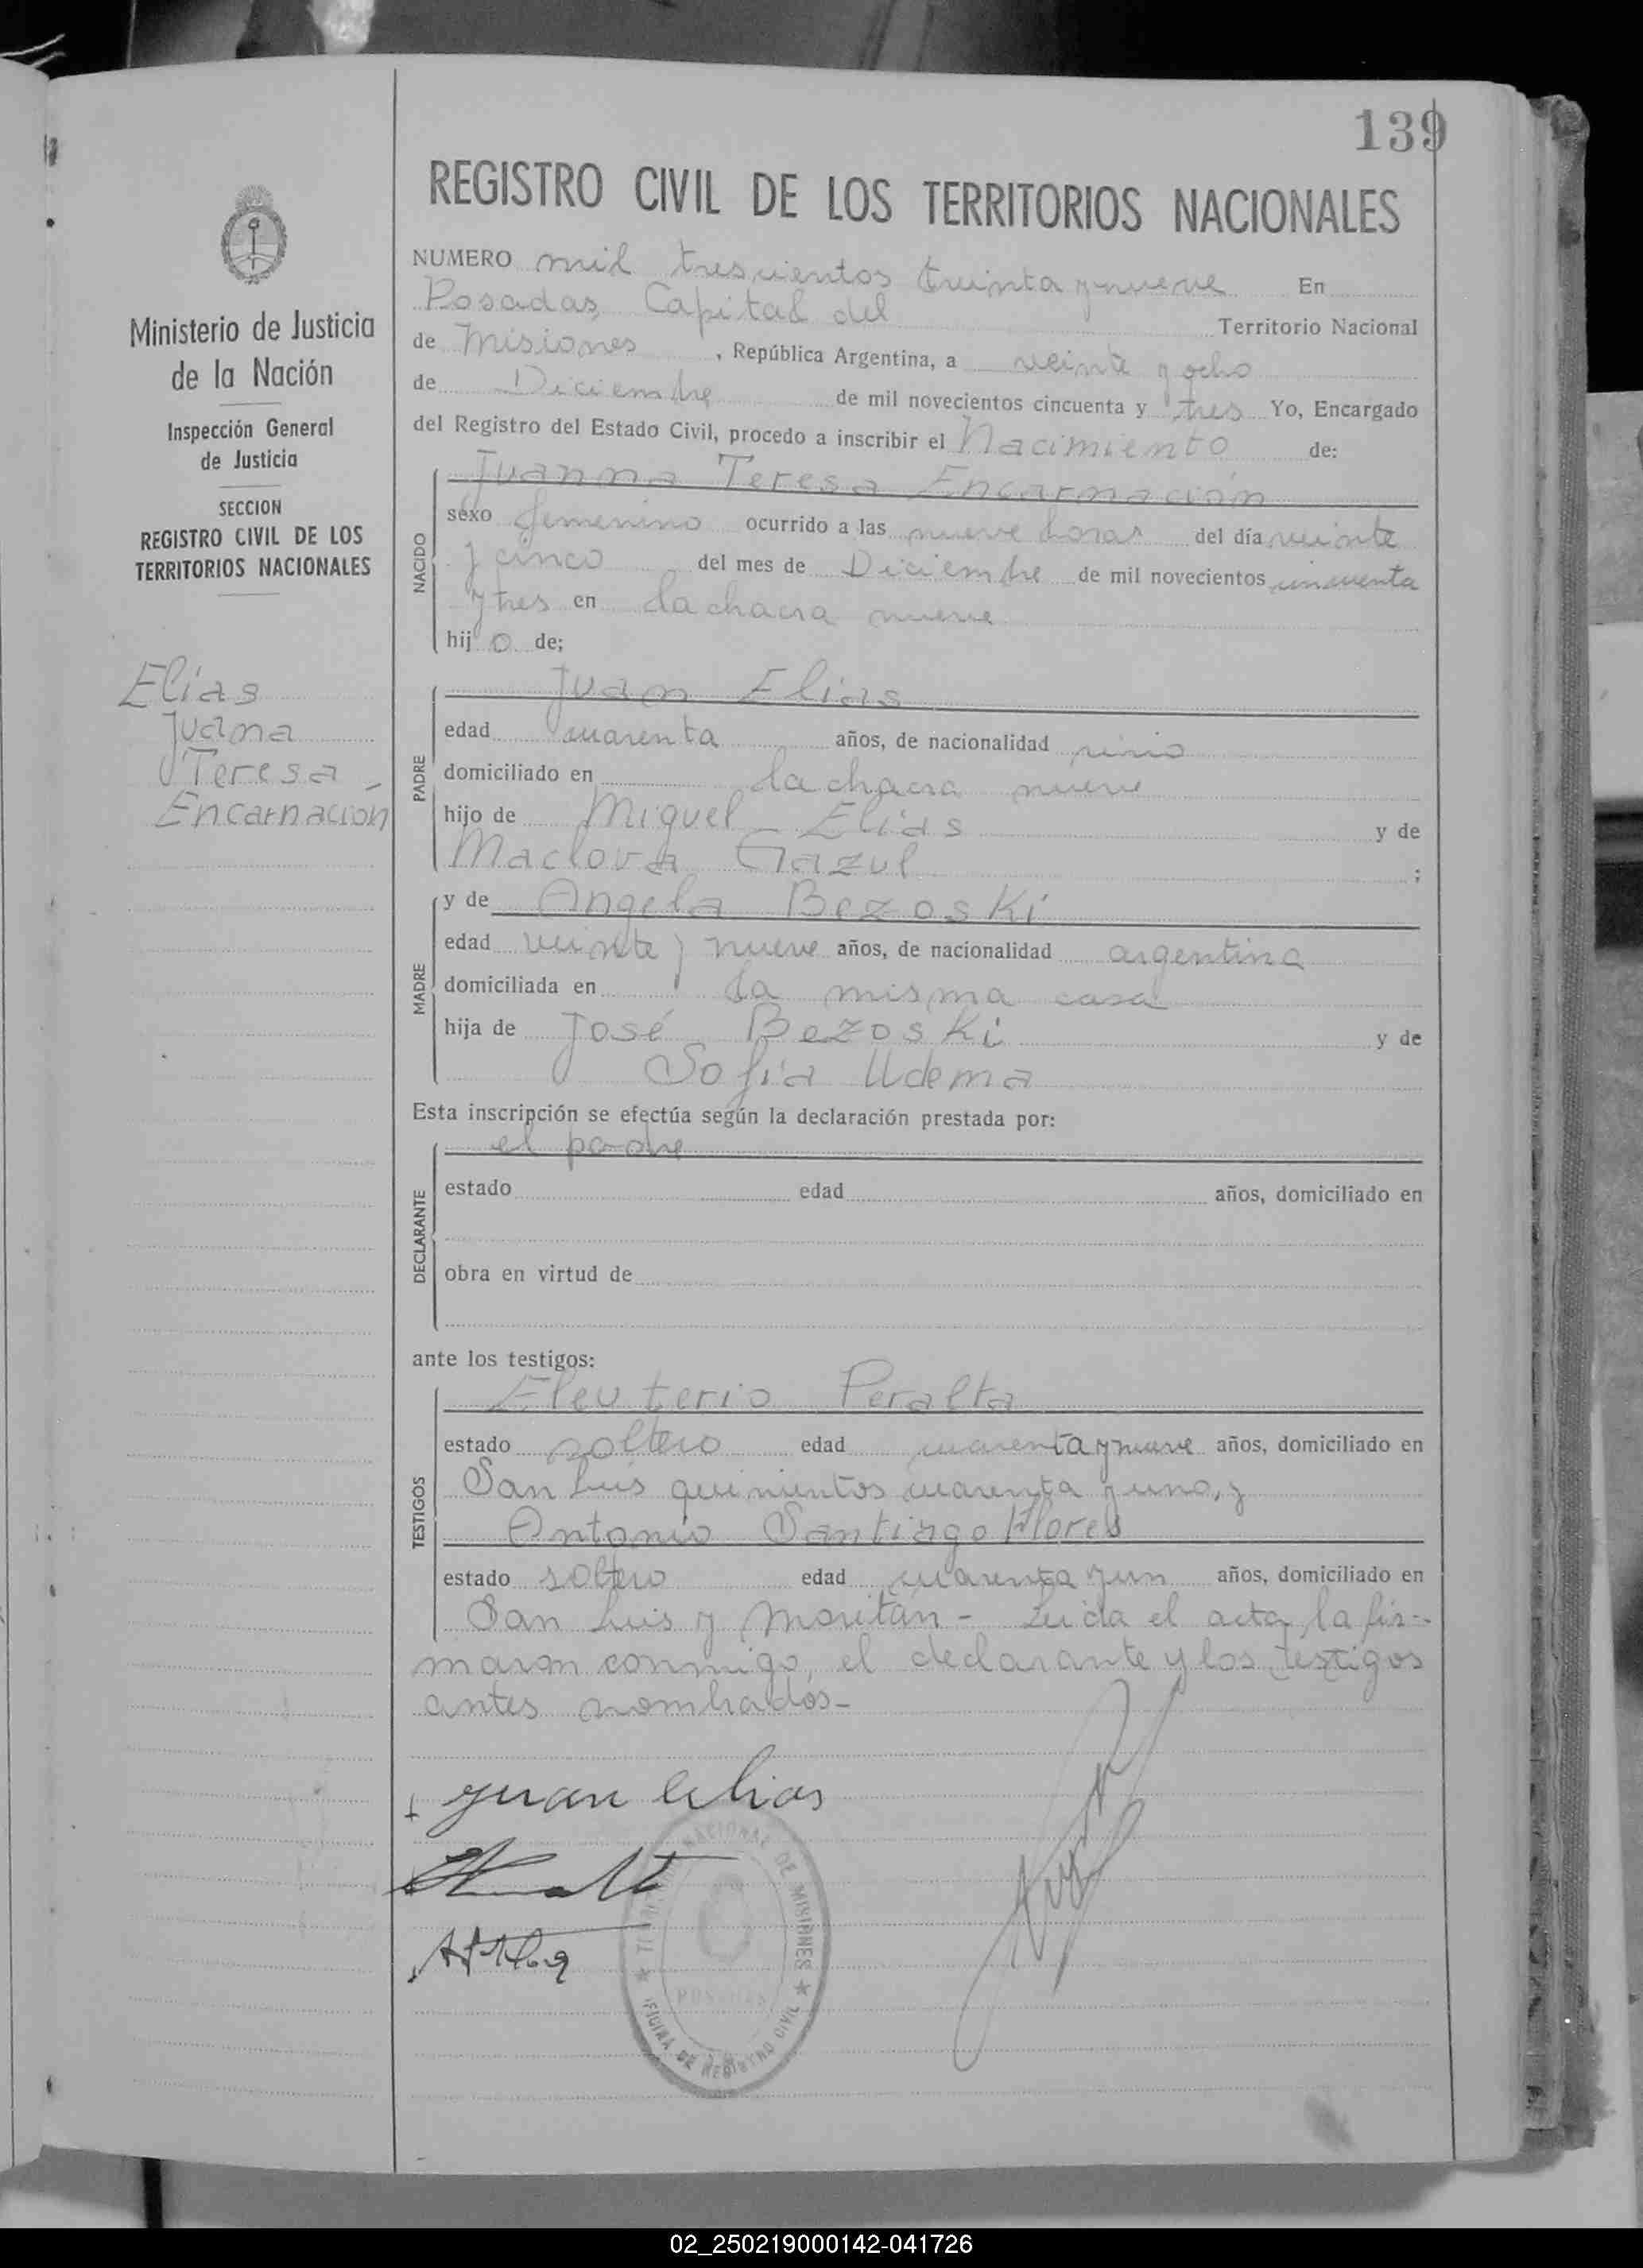 139
REGISTRO CIVIL DE LOS TERRITORIOS NACIONALES
NUMERO mil trescientos treinta y nueve En
Posadas, Capital del Territorio Nacional
de Misiones, República Argentina, a veinte y ocho
de Diciembre de mil novecientos cincuenta y tres Yo, Encargado
del Registro del Estado Civil, procedo a inscribir el Nacimiento de:
Ministerio de Justicia
de la Nación
Inspección General
de Justicia
SECCION
REGISTRO CIVIL DE LOS
TERRITORIOS NACIONALES
Elias
Juana
Teresa
Encarnación
NACIDO
Juanna Teresa Encarnación
sexo femenino ocurrido a las nueve horas del día veinte
y cinco del mes de Diciembre de mil novecientos cincuenta
y tres en la chacra nueve
hij o de;
PADRE
Juan Elias
edad cuarenta años, de nacionalidad sirio
domiciliado en la chacra nueve
hijo de Miguel Elias y de
Maclova Gazul ;
MADRE
y de Angela Bezoski
edad veinte y nueve años, de nacionalidad argentina
domiciliada en la misma casa
hija de José Bezoski y de
Sofia Udema
Esta inscripción se efectúa según la declaración prestada por:
DECLARANTE
el padre
estado edad años, domiciliado en
obra en virtud de
ante los testigos:
TESTIGOS
Eleuterio Peralta
estado soltero edad cuarenta y nueve años, domiciliado en
San Luis quinientos cuarenta y uno, y
Antonio Santiago Flores
estado soltero edad cuarenta y un años, domiciliado en
San Luis y Moritán - Leida el acta, la fir-
maron conmigo, el declarante y los testigos
antes nombrados -
Juan Elias
NACIONAL DE MISIONES
POSADAS
OFICINA DE REGISTRO CIVIL
02_250219000142-041726